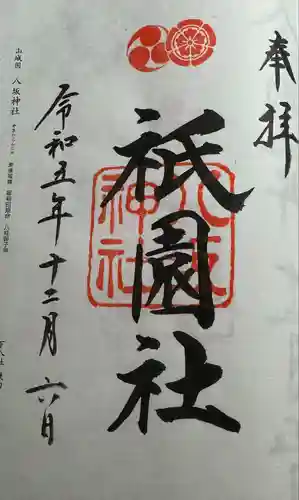 奉拝
祇園社
八坂神社
令和五年十二月六日
山城国 八坂神社